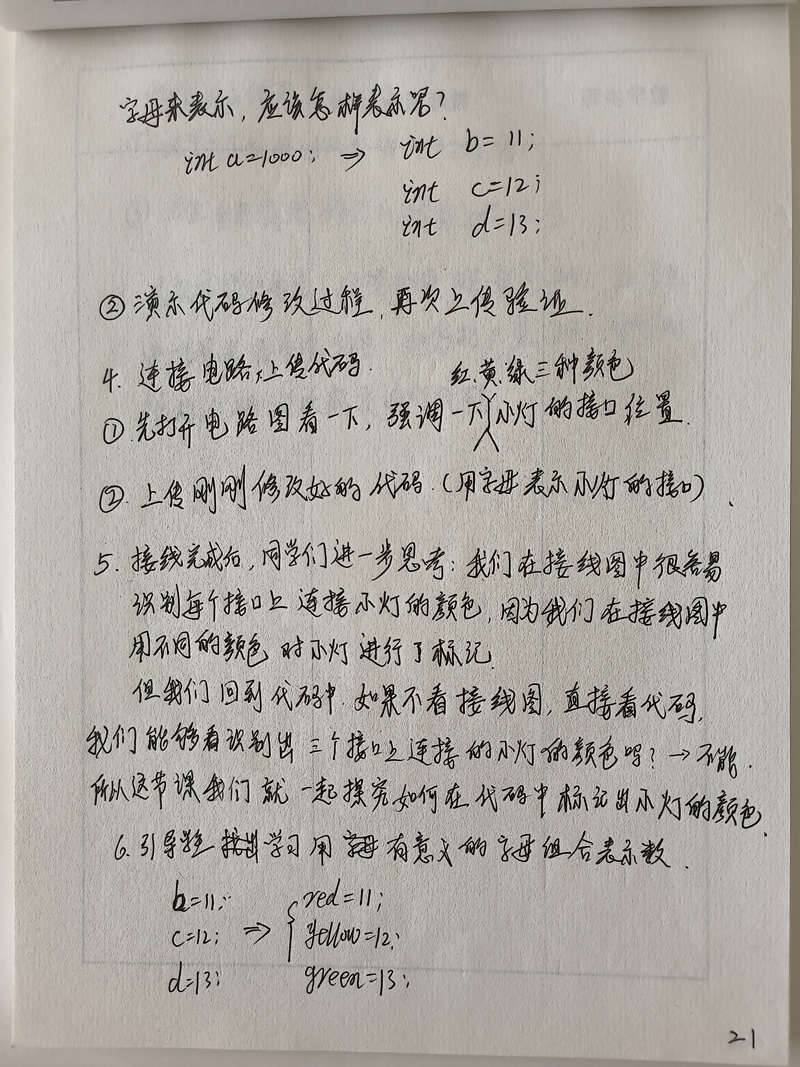 字母来表示，应该怎样表示呢？
int a=1000; ⇒ int b=11;
int c=12;
int d=13;
② 演示代码修改过程，再次上传验证.
4. 连接电路，上传代码.
红、黄、绿三种颜色
① 先打开电路图看一下，强调一下小灯的接口位置.
②. 上传刚刚修改好的代码.（用字母表示小灯的接口）、
5. 接线完成后，同学们进一步思考：我们在接线图中很容易
识别每个接口上连接小灯的颜色，因为我们在接线图中
用不同的颜色对小灯进行了标记.
但我们回到代码中.如果不看接线图，直接看代码，
我们能够看识别出三个接口上连接的小灯的颜色吗？→不能.
所以这节课我们就一起探究如何在代码中标记出小灯的颜色.
6. 引导学生学习用有意义的字母组合表示数.
b=11; red=11;
c=12; ⇒ yellow=12;
d=13; green=13;
21